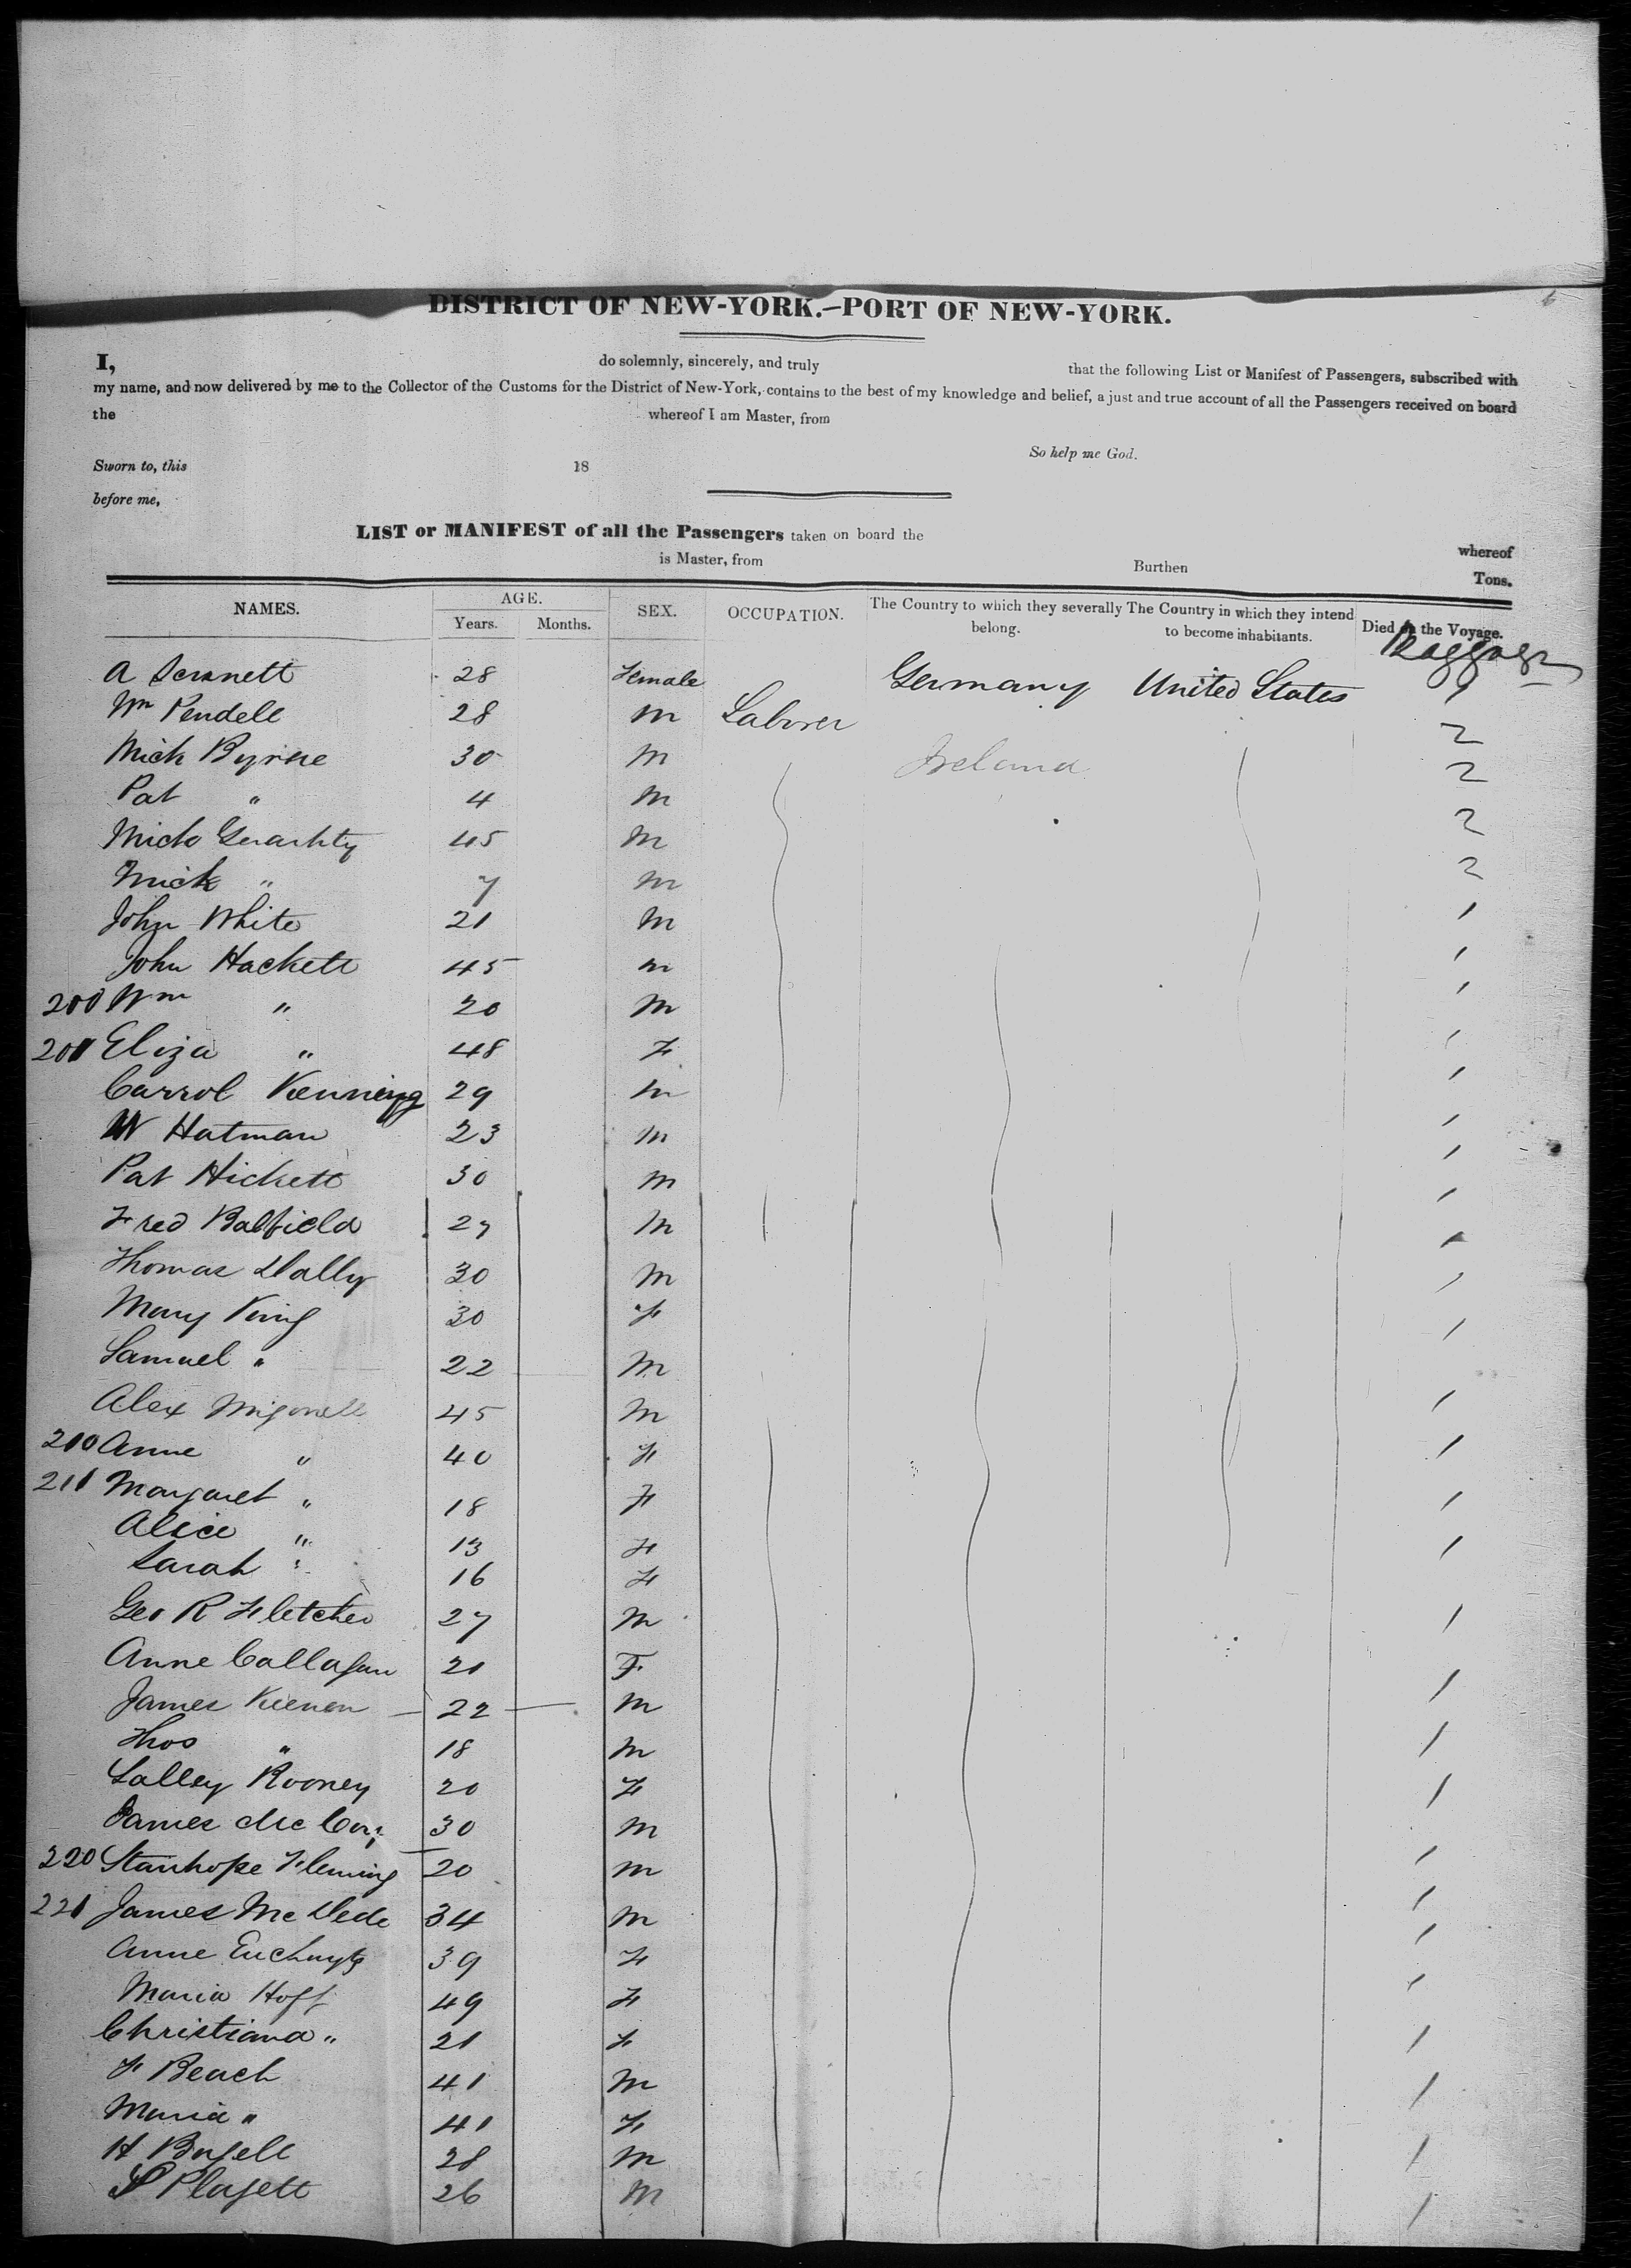 DISTRICT OF NEW-YORK.—PORT OF NEW-YORK.
I, do solemnly, sincerely, and truly that the following List or Manifest of Passengers, subscribed with
my name, and now delivered by me to the Collector of the Customs for the District of New-York, contains to the best of my knowledge and belief, a just and true account of all the Passengers received on board
the whereof I am Master, from
So help me God.
Sworn to, this 18
before me,
LIST or MANIFEST of all the Passengers taken on board the whereof
is Master, from Burthen Tons.
NAMES. AGE. Years. Months. SEX. OCCUPATION. The Country to which they severally belong. The Country in which they intend to become inhabitants. Died on the Voyage.
Baggage
A 28 Female Germany United States 1
Wm Pendell 28 m Laborer 2
Mick Byrne 30 m Ireland 2
Pat " 4 m 2
Mick Geraghty 45 m 2
Mick " 7 m
John White 21 m 1
John Hackett 45 m 1
200 Wm " 20 m 1
201 Eliza " 48 F 1
Carrol Kenning 29 m 1
W Hatman 23 m 1
Pat Hickett 30 m 1
Fred Balfield 27 m 1
Thomas Dally 30 m 1
Mary King 30 F 1
Samuel " 22 m 1
Alex 45 m 1
210 Anne " 40 F 1
211 Margaret " 18 F 1
Alice " 13 F 1
Sarah " 16 F
Geo R Fletcher 27 m 1
Anne Callagan 21 F 1
James Keenan 22 m
Thos " 18 m 1
Salley Rooney 20 F 1
James Mc 30 m
220 Stanhope Fleming 20 m 1
221 James Mc Dede 34 m 1
Anne 39 F 1
Maria Hoff 49 F 1
Christiana " 21 F 1
F Beach 41 m 1
Maria " 41 F
H 28 m 1
Plagett 26 m 1